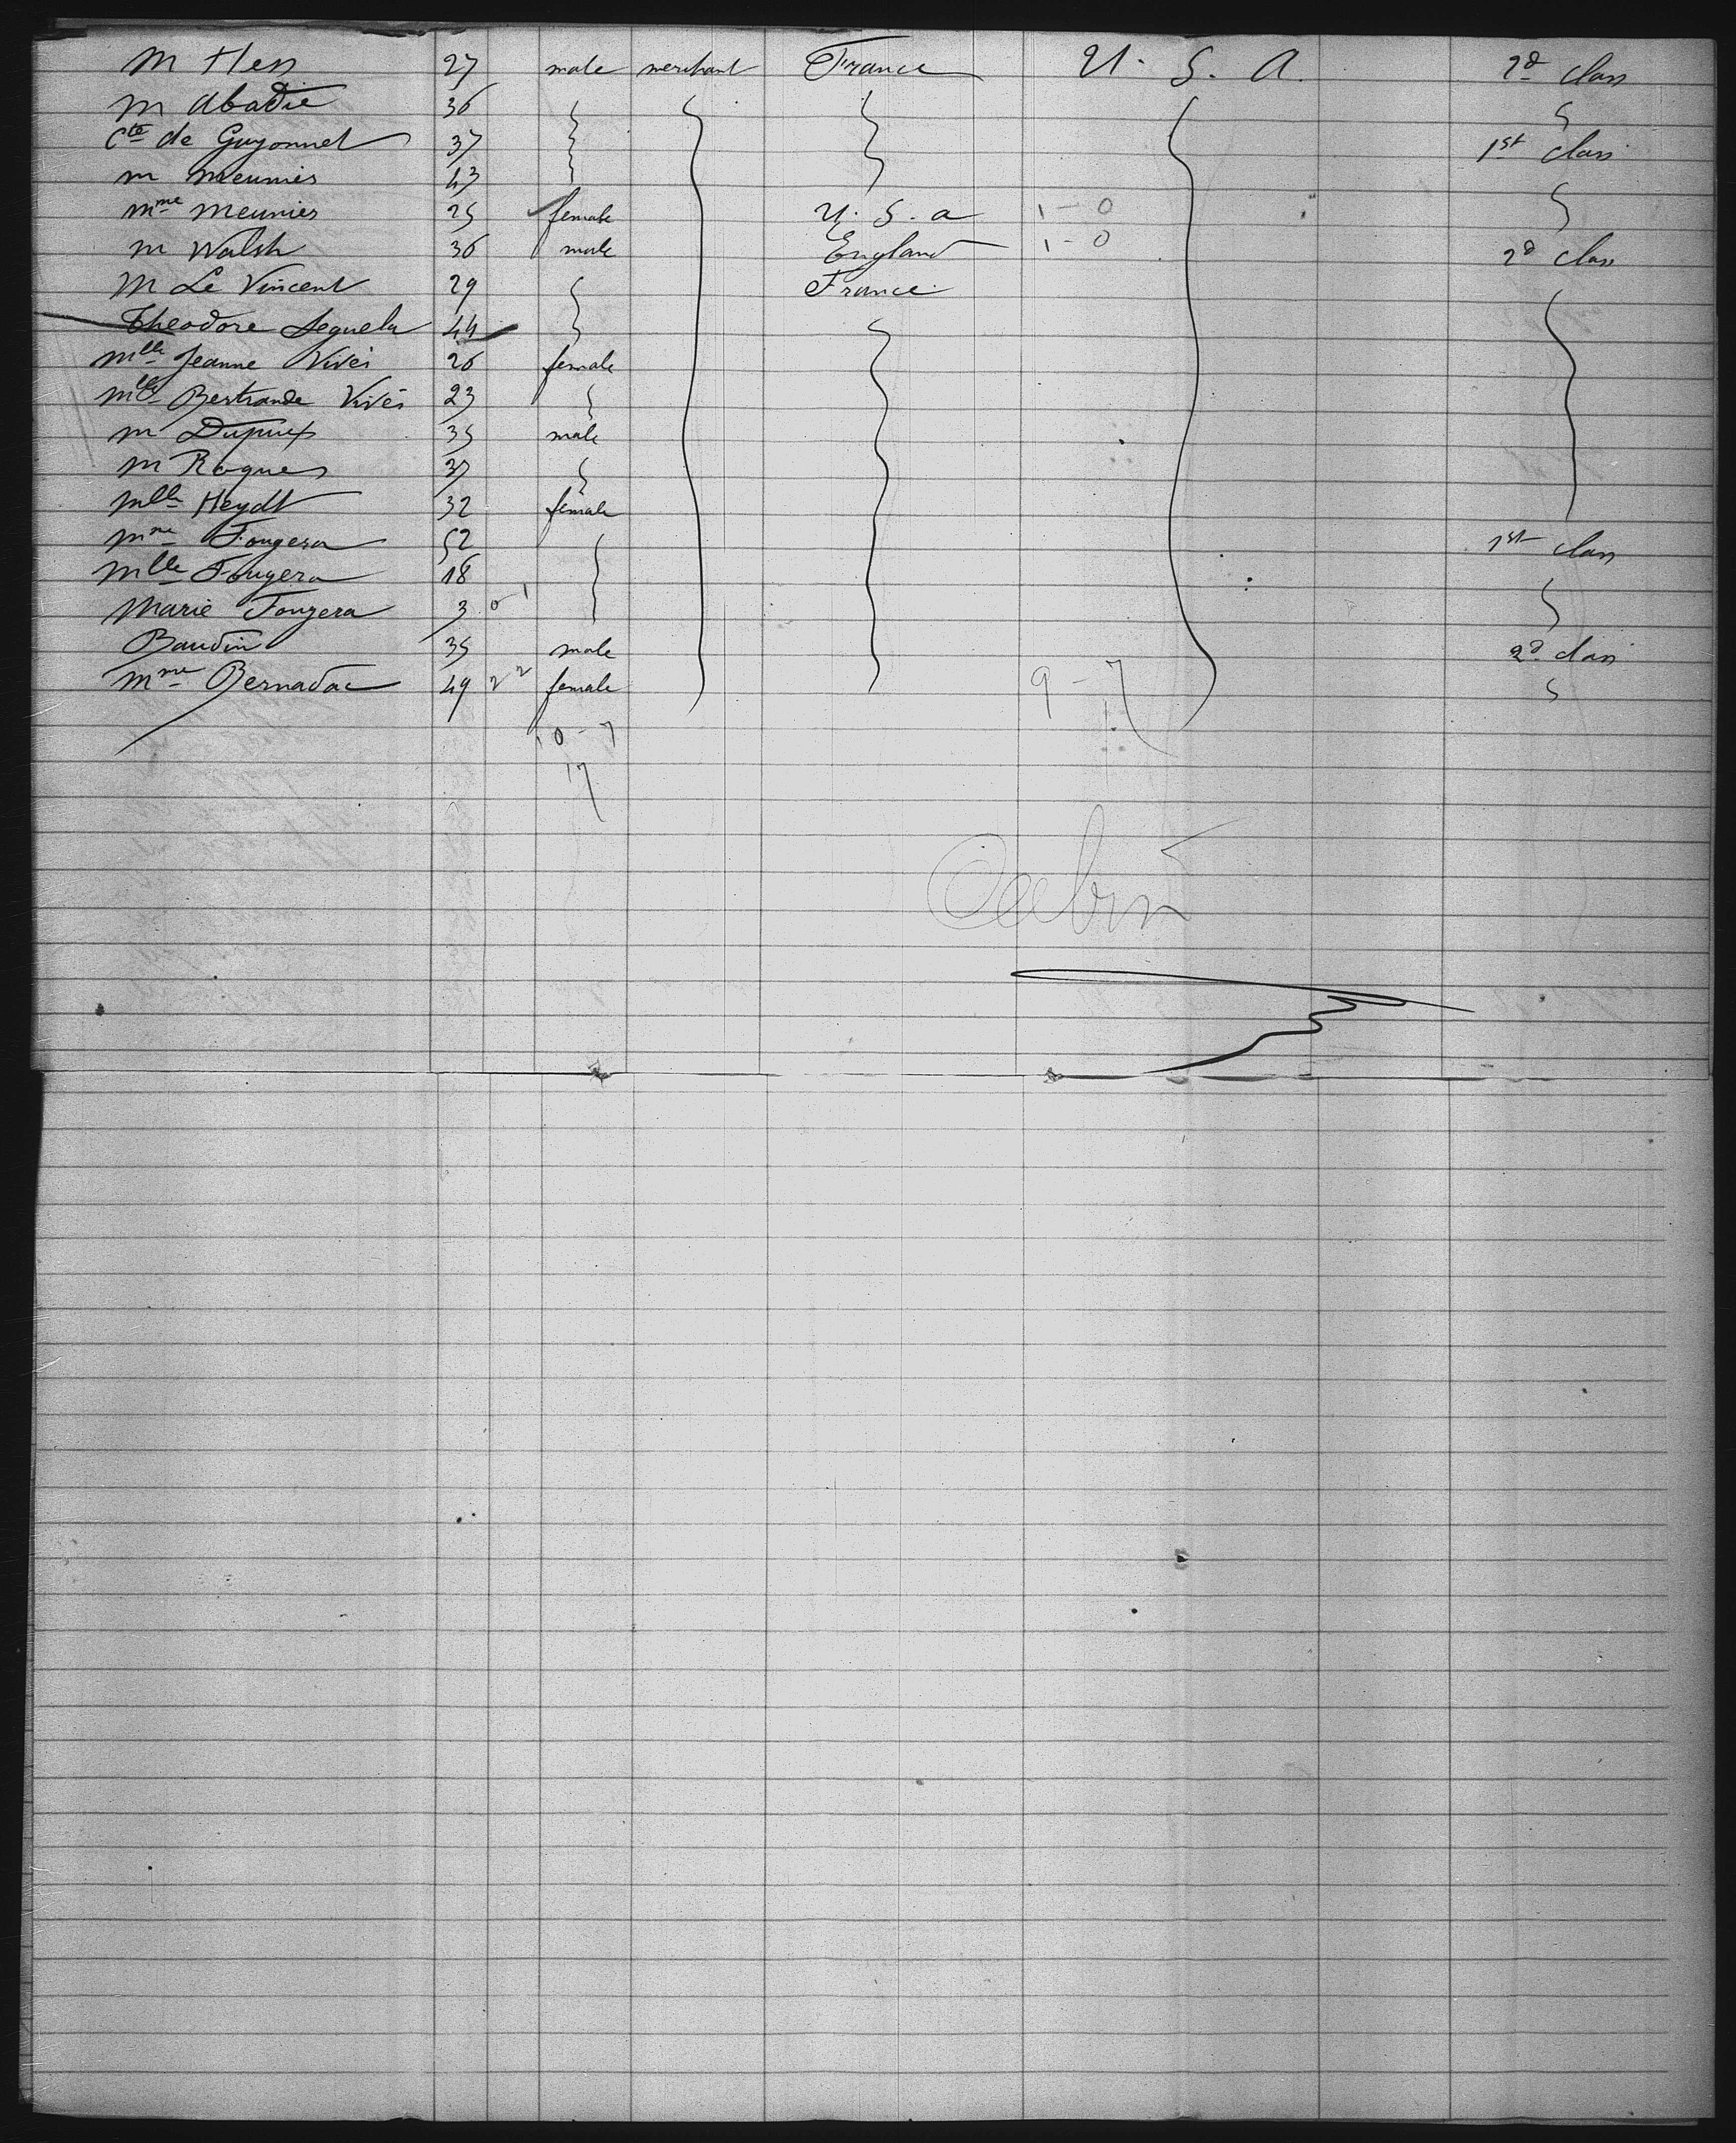 M Hess 27 male merchant France U. S. A. 2d class
M Abadie 36
Cte de Guyonnet 37 1st class
M Meunier 43
Mme Meunier 25 female U. S. A 1-0
M Walsh 36 male England 1-0 2d class
M Le Vincent 29 France
Theodore Seguela 44
Mlle Jeanne Vivès 26 female
Mlle Bertrande Vivès 23
M Dupuy 35 male
M Roques 37
Mlle Heydt 32 female
Mme Fougera 52 1st class
Mlle Fougera 18
Marie Fougera 3 0-1
Baudin 35 male 2d class
Mme Bernadac 49 2 2 female 9-7
10-7
17
Cabin